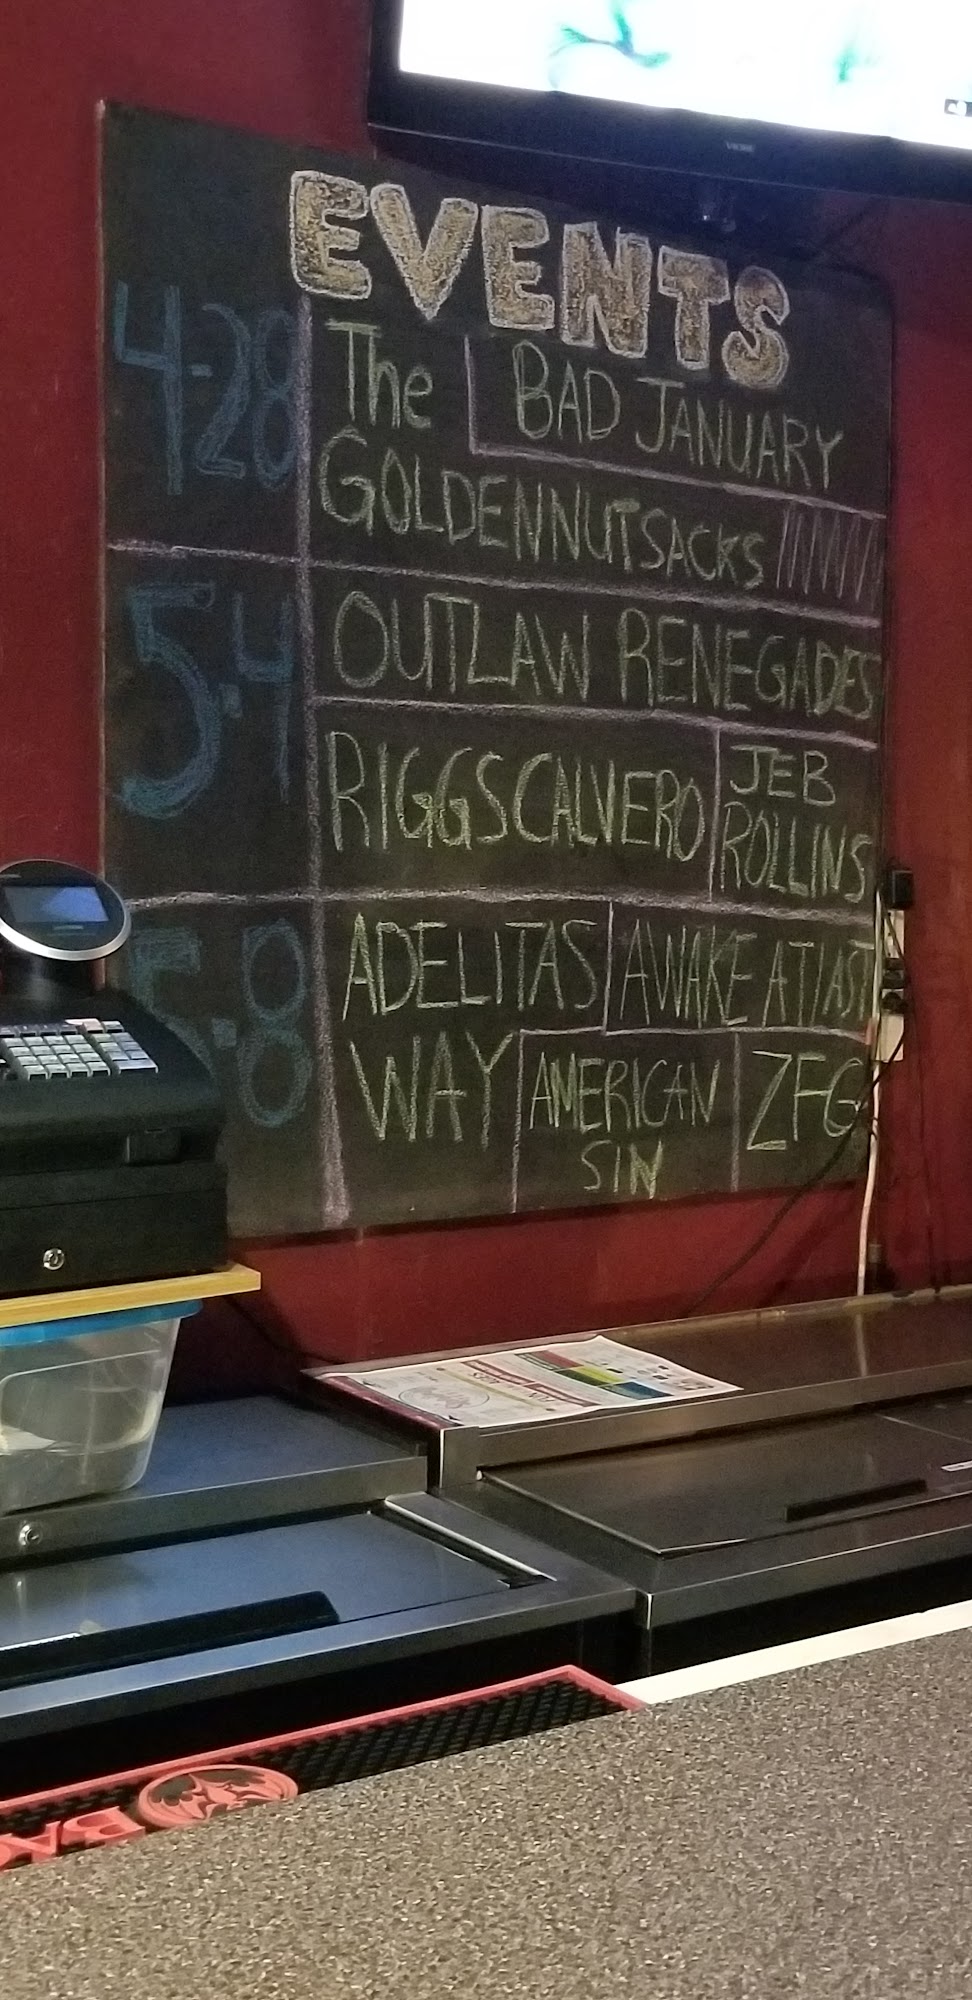 EVENTS
4-28
The
BAD JANUARY
GOLDENNUTSACKS
5-4
OUTLAW RENEGADES
RIGGSCALVERO
JEB
ROLLINS
5-8
ADELITAS
WAY
AWAKE AT LAST
AMERICAN
SIN
ZFG
VIORE
BA